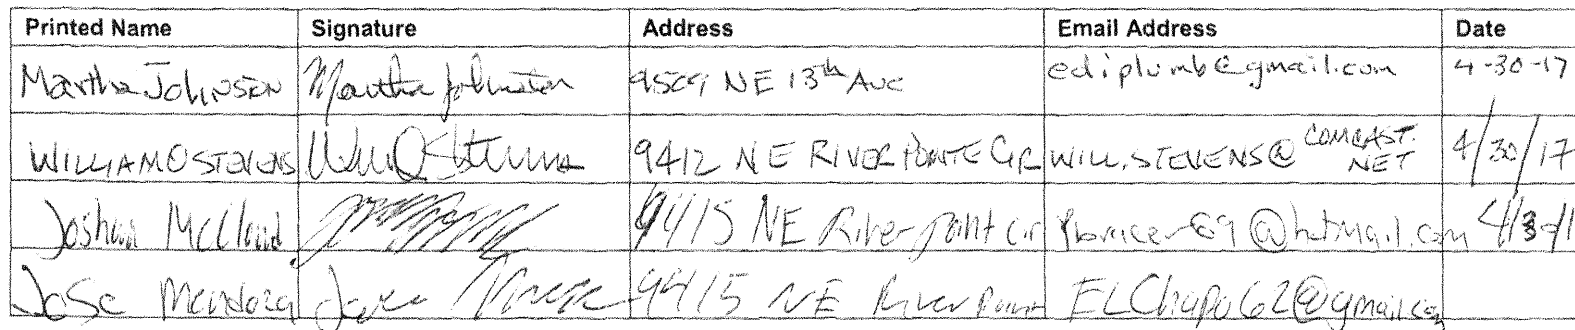 Printed Name Signature Address Email Address Date
Martha Johnson Martha Johnston 9509 NE 13th Ave ediplumb@gmail.com 4-30-17
WILLIAM O STEVENS 9412 NE RIVER POINTE CIR WILL.STEVENS@COMCAST.NET 4/30/17
Joshua McCloud 9415 NE River point cir @hotmail.com
Jose Mendoza Jose 9415 NE River Point ELChapo62@gmail.com